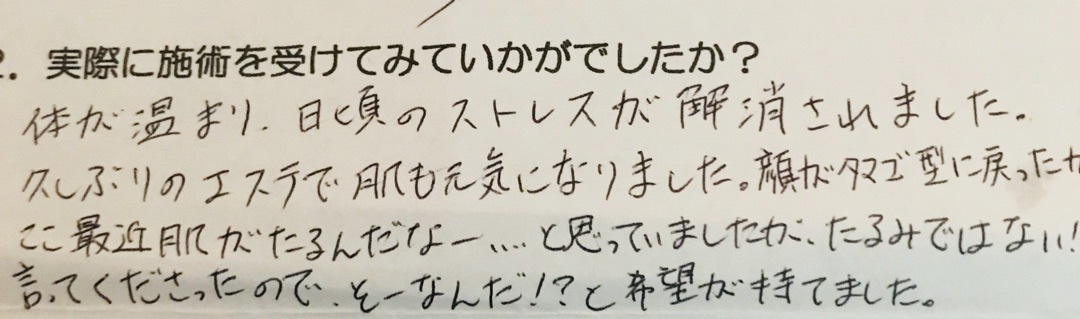 2. 実際に施術を受けてみていかがでしたか？
体が温まり、日頃のストレスが解消されました。
久しぶりのエステで肌も元気になりました。顔がタマゴ型に戻った
ここ最近肌がたるんだなー、…と思っていましたが、たるみではない!
言ってくださったので、そーなんだ!?と希望が持てました。